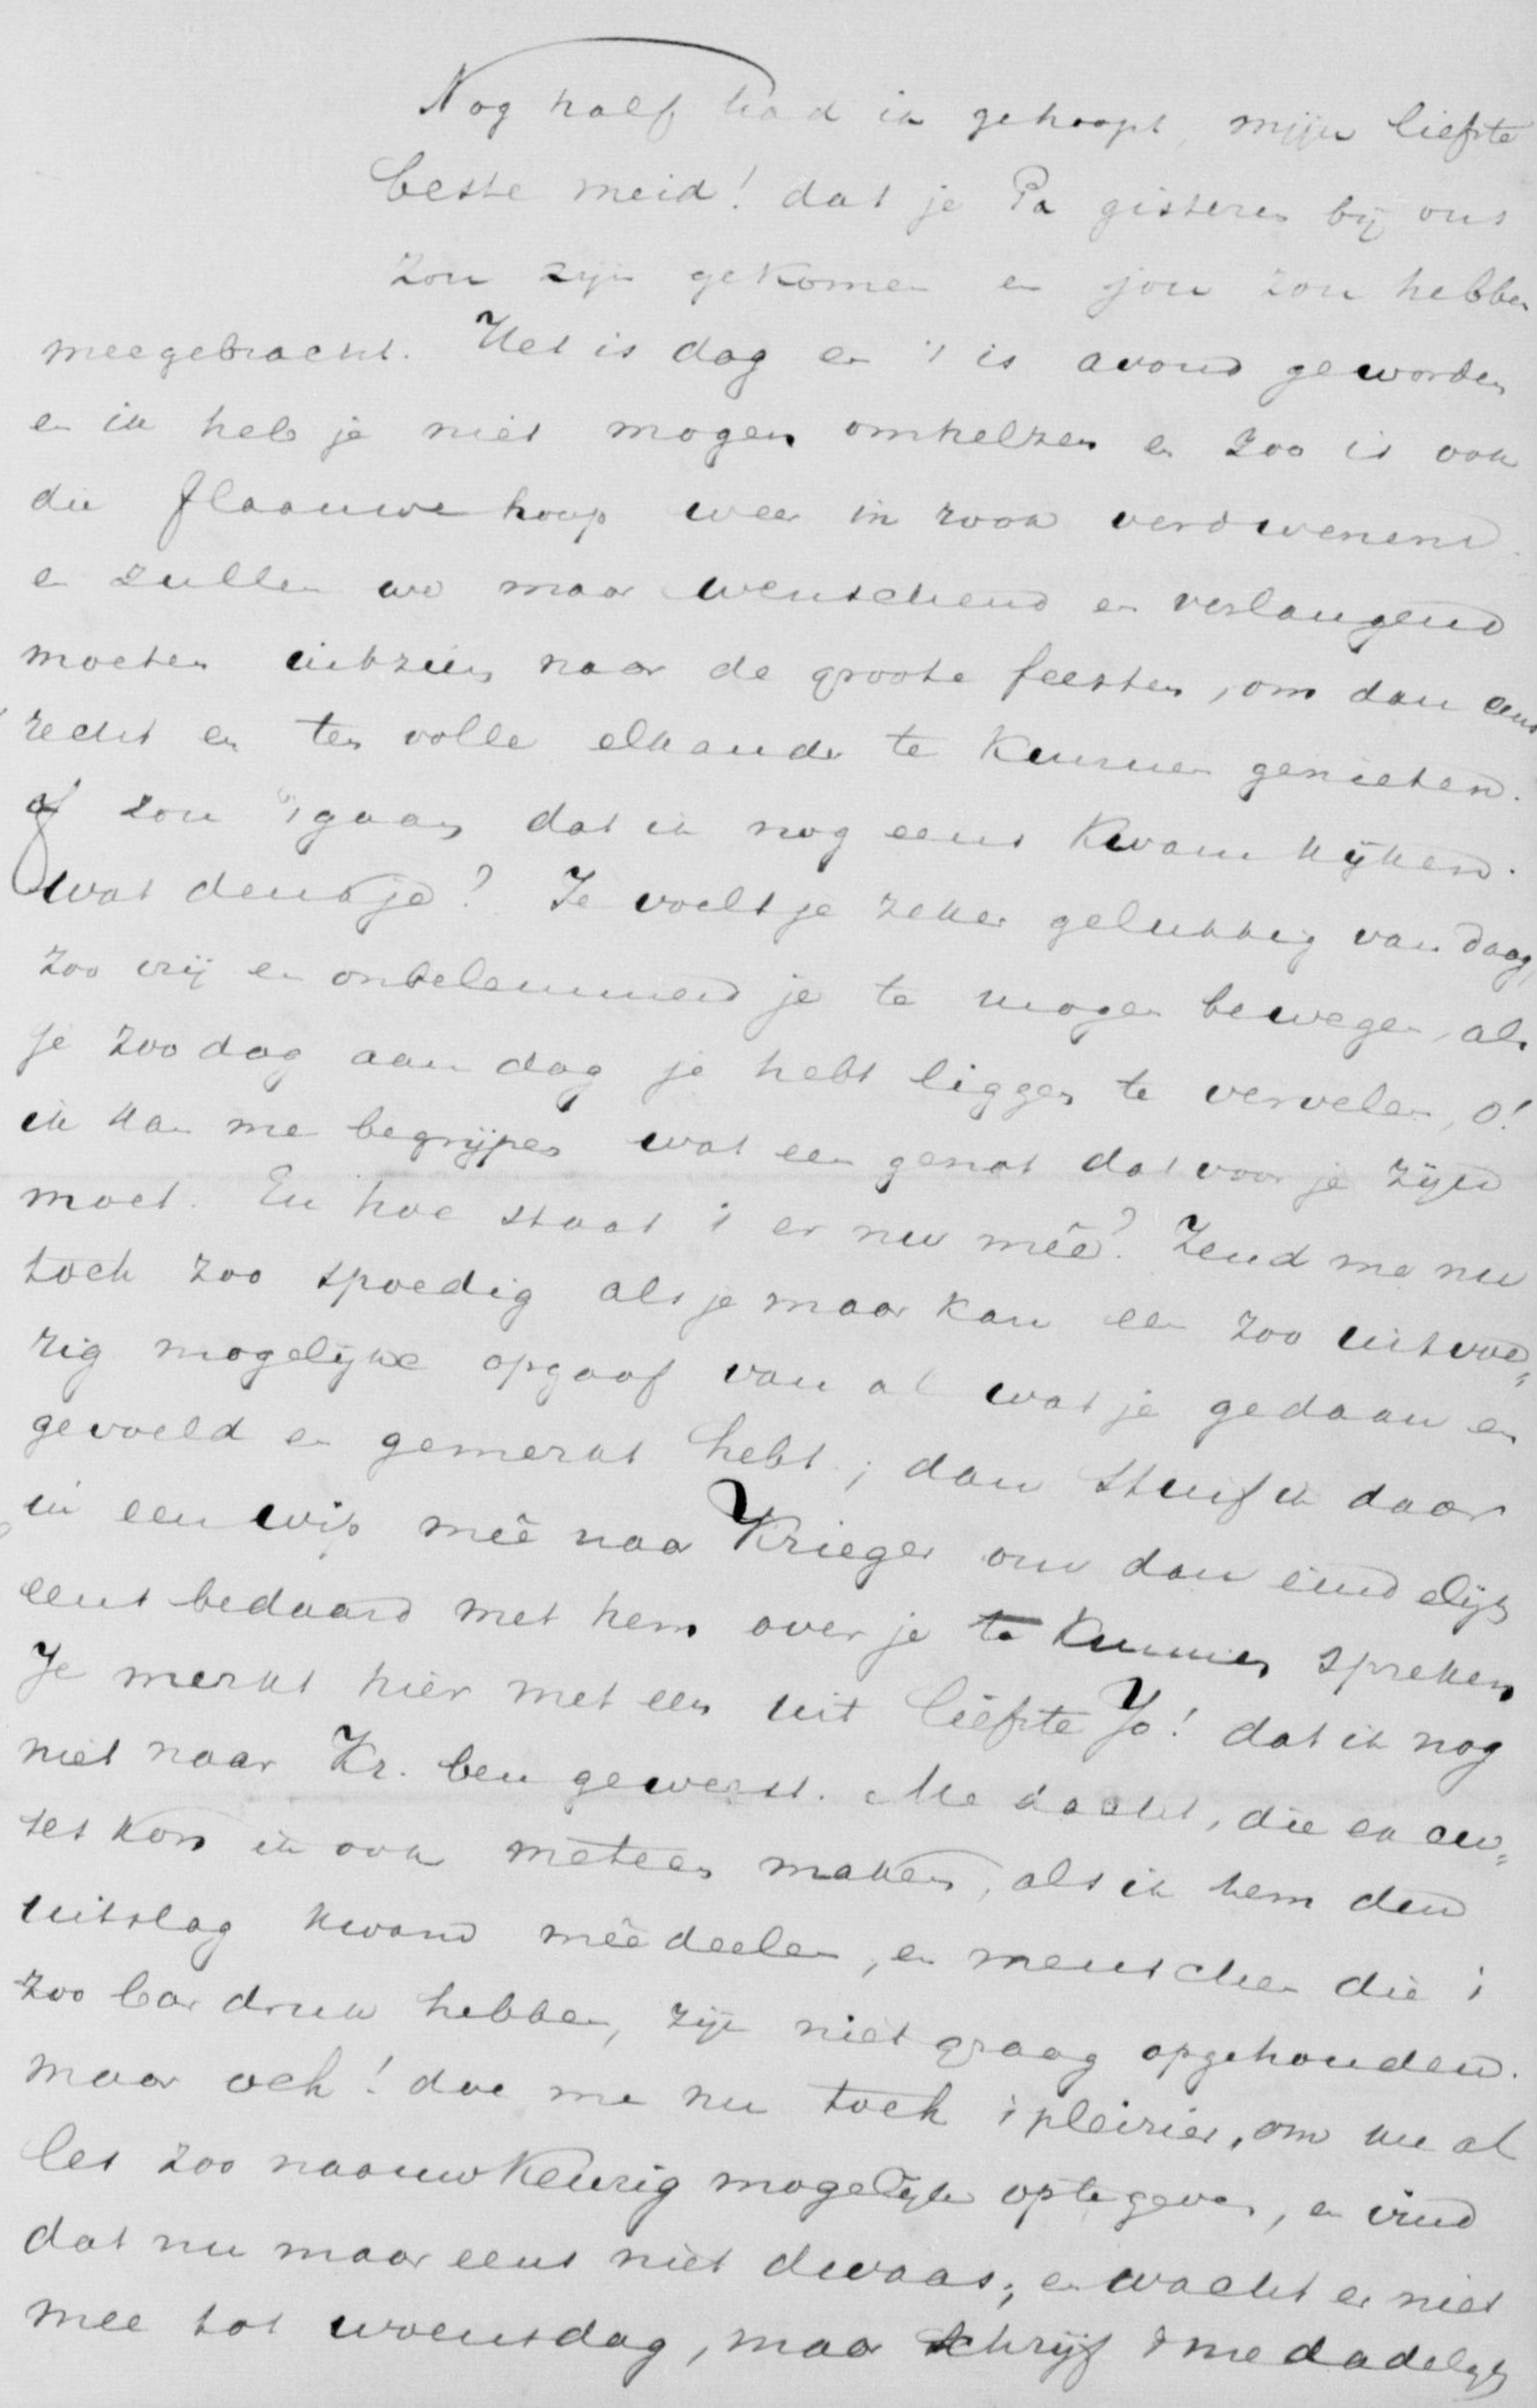 Nog half had ik gehoopt, mijn liefste
beste meid! dat je Pa gisteren bij ons
zou zijn gekomen en jou zou hebben
meegebracht. Het is dag en 't is avond geworden
en ik heb je niet mogen omhelzen en zoo is ook
die flaauwe hoop weer in rook verdwenen
en zullen we maar wenschend en verlangend
moeten uitzien naar de groote feesten, om dan eens
recht en ten volle elkander te kunnen genieten.
Of zou 't gaan dat ik nog eens kwam kijken.
wat denk je? Je voelt je zeker gelukkig van daag,
zoo vrij en onbelemmerd je te mogen bewegen, als
je zoo dag aan dag je hebt liggen te vervelen, o!
ik kan me begrijpen wat een genot dat voor je zijn
moet. En hoe staat 't er nu meê? Zend me nu
toch zoo spoedig als je maar kan een zoo uitvoe„
rig mogelijke opgaaf van al wat je gedaan en
gevoeld en gemerkt hebt; dan stuif ik daar
in een wip meê naar Krieger om dan eindelijk
eens bedaard met hem over je te kunnen spreken
Je merkt hier met een uit liefste Jo! dat ik nog
niet naar Kr. ben geweest. Me dacht, die en au„
ter kon ik ook meteen maken, als ik hem den
uitslag kwam meêdeelen, en menschen die 't
zoo bar druk hebben, zijn niet graag opgehouden.
maar och! doe me nu toch 't pleizier, om me al
les zoo naauwkeurig mogelijk optegeven, en vind
dat nu maar eens niet dwaas; en wacht er niet
mee tot woensdag, maar schrijf 't me dadelijk